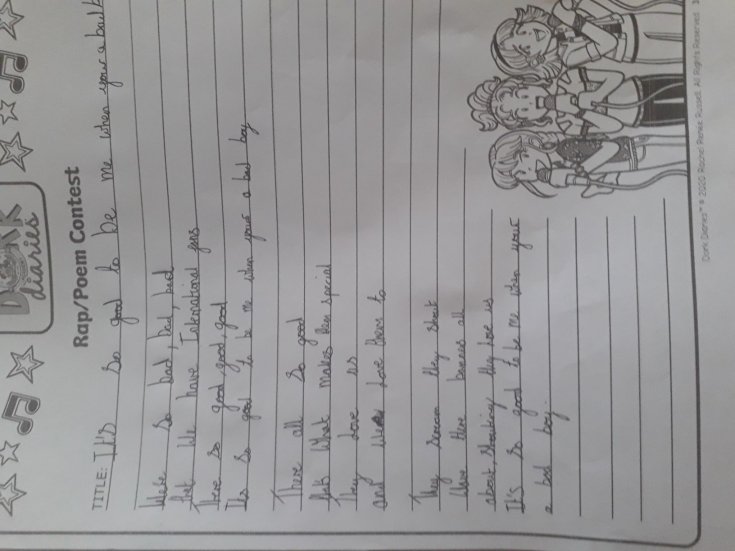 DORK
diaries
Rap/Poem Contest
TITLE: It's so good to be me when your a bad b
We're so bad, bad, bad
that We have International fans
There so good, good, good
It's so good to be me when your a bad boy
There all so good
that's What makes them special
They Love us
and We Love them to
They scream they shout
Wave there banners all
about, shouting they Love us
It's so good to be me when your
a bad boy.
Dork Diaries™ © 2020 Rachel Renée Russell. All Rights Reserved